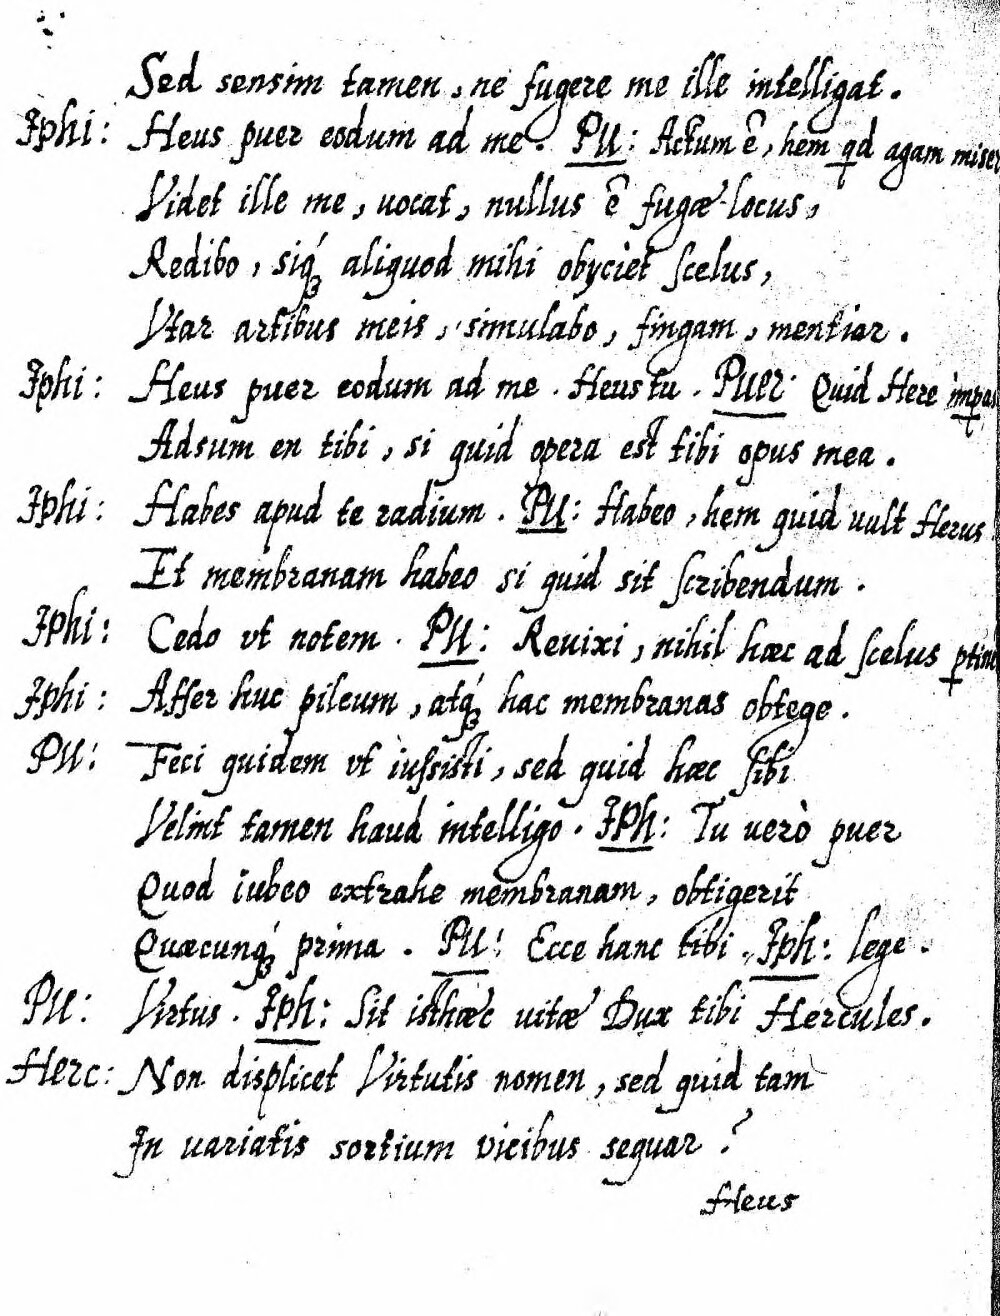 Sed sensim tamen, ne fugere me ille intelligat.
Iphi: Heus puer eodum ad me. PU: Actum ē, hem qd agam miser
Videt ille me, uocat, nullus ē fugæ locus,
Redibo, siq́ꝫ aliquod mihi obyciet scelus,
Vtar artibus meis, simulabo, fingam, mentiar.
Iphi: Heus puer eodum ad me. Heus tu. Puer Quid Here
Adsum en tibi, si quid opera est tibi opus mea.
Iphi: Habes apud te radium. PU: Habeo, hem quid uult Herus
Et membranam habeo si quid sit scribendum.
Iphi: Cedo vt notem. PU: Reuixi, nihil hæc ad scelus
Iphi: Affer huc pileum, atq́ꝫ hac membranas obtege.
PU: Feci quidem vt iussisti, sed quid hæc sibi
Velint tamen haud intelligo. IPh: Tu uerò puer
Quod iubeo extrahe membranam, obtigerit
Quæcunq́ꝫ prima. PU: Ecce hanc tibi. Iph: lege.
PU: Virtus. Iph: Sit isthæc uitæ Dux tibi Hercules.
Herc: Non displicet Virtutis nomen, sed quid tam
In uariatis sortium vicibus sequar?
Heus